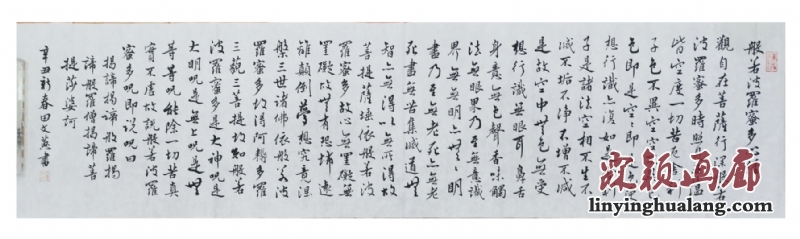 般若波羅蜜多心
觀自在菩薩行深般若
波羅蜜多時照見五
皆空度一切苦厄舍
子色不異空空
色即是空空即是色受
想行識亦復如是
子是諸法空相不生不
滅不垢不淨不增不減
是故空中無色無受
想行識無眼耳鼻舌
身意無色聲香味觸
法無眼界乃至無意識
界無無明亦無無明
盡乃至無老死亦無老
死盡無苦集滅道無
智亦無得以無所得故
菩提薩埵依般若波
羅蜜多故心無罣礙無
罣礙故無有恐怖遠
離顛倒夢想究竟涅
槃三世諸佛依般若波
羅蜜多故得阿耨多羅
三藐三菩提故知般若
波羅蜜多是大神咒是
大明咒是無上咒是無
等等咒能除一切苦真
實不虛故說般若波羅
蜜多咒即說咒曰
揭諦揭諦般羅揭
諦般羅僧揭諦菩
提莎婆訶
辛丑新春田文英書
霖颖画廊
linyinghualang.com